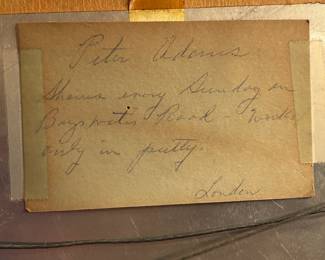 Peter Adams
Shows every Sunday on
Bayswater Road - Works
only in putty.
London